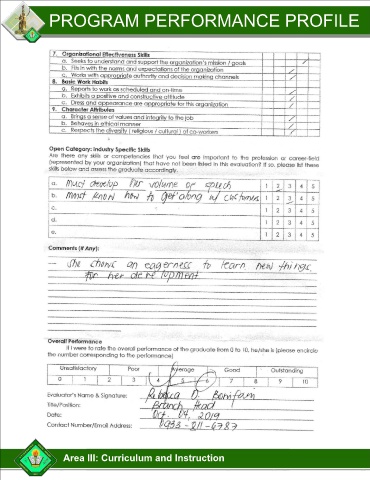 PROGRAM PERFORMANCE PROFILE
7. Organizational Effectiveness Skills
a. Seeks to understand and support the organization's mission / goals
b. Fits in with the norms and expectations of the organization
c. Works with appropriate authority and decision making channels
8. Basic Work Habits
a. Reports to work as scheduled and on-time
b. Exhibits a positive and constructive attitude
c. Dress and appearance are appropriate for this organization
9. Character Attributes
a. Brings a sense of values and integrity to the job
b. Behaves in ethical manner
c. Respects the diversity ( religious / cultural ) of co-workers
Open Category: Industry Specific Skills
Are there any skills or competencies that you feel are important to the profession or career-field
(represented by your organization) that have not been listed in this evaluation? If so, please list these
skills below and assess the graduate accordingly.
a. must develop her volume of speech 1 2 3 4 5
b. must know how to get along w/ customers 1 2 3 4 5
c. 1 2 3 4 5
d. 1 2 3 4 5
e. 1 2 3 4 5
Comments (If Any):
She shows an eagerness to learn new things
for her development
Overall Performance
If I were to rate the overall performance of the graduate from 0 to 10, he/she is (please encircle
the number corresponding to the performance)
Unsatisfactory Poor Average Good Outstanding
0 1 2 3 4 5 6 7 8 9 10
Evaluator's Name & Signature: Rebecca D. Bonifam
Title/Position: Branch Head
Date: Oct. 04, 2019
Contact Number/Email Address: 0933-811-6787
Area III: Curriculum and Instruction